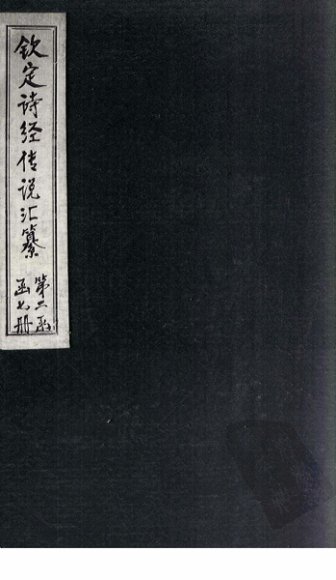 钦定诗经传说汇纂
第二函
函七册